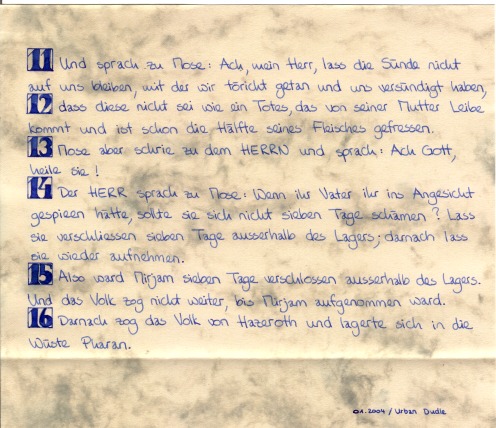 11 Und sprach zu Mose: Ach, mein Herr, lass die Sünde nicht
auf uns bleiben, mit der wir töricht getan und uns versündigt haben,
12 dass diese nicht sei wie ein Totes, das von seiner Mutter Leibe
kommt und ist schon die Hälfte seines Fleisches gefressen.
13 Mose aber schrie zu dem HERRN und sprach: Ach Gott,
heile sie!
14 Der HERR sprach zu Mose: Wenn ihr Vater ihr ins Angesicht
gespieen hätte, sollte sie sich nicht sieben Tage schämen? Lass
sie verschliessen sieben Tage ausserhalb des Lagers; darnach lass
sie wieder aufnehmen.
15 Also ward Mirjam sieben Tage verschlossen ausserhalb des Lagers.
Und das Volk zog nicht weiter, bis Mirjam aufgenommen ward.
16 Darnach zog das Volk von Hazeroth und lagerte sich in die
Wüste Pharan.
01.2004 / Urban Dudle